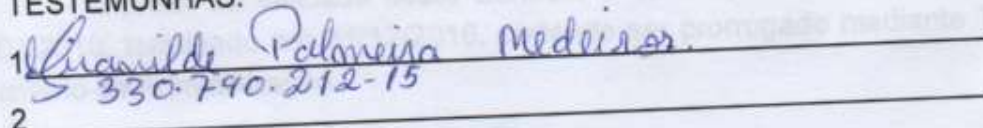 TESTEMUNHAS:
1 Palmeira Medeiros.
330.790.212-15
2